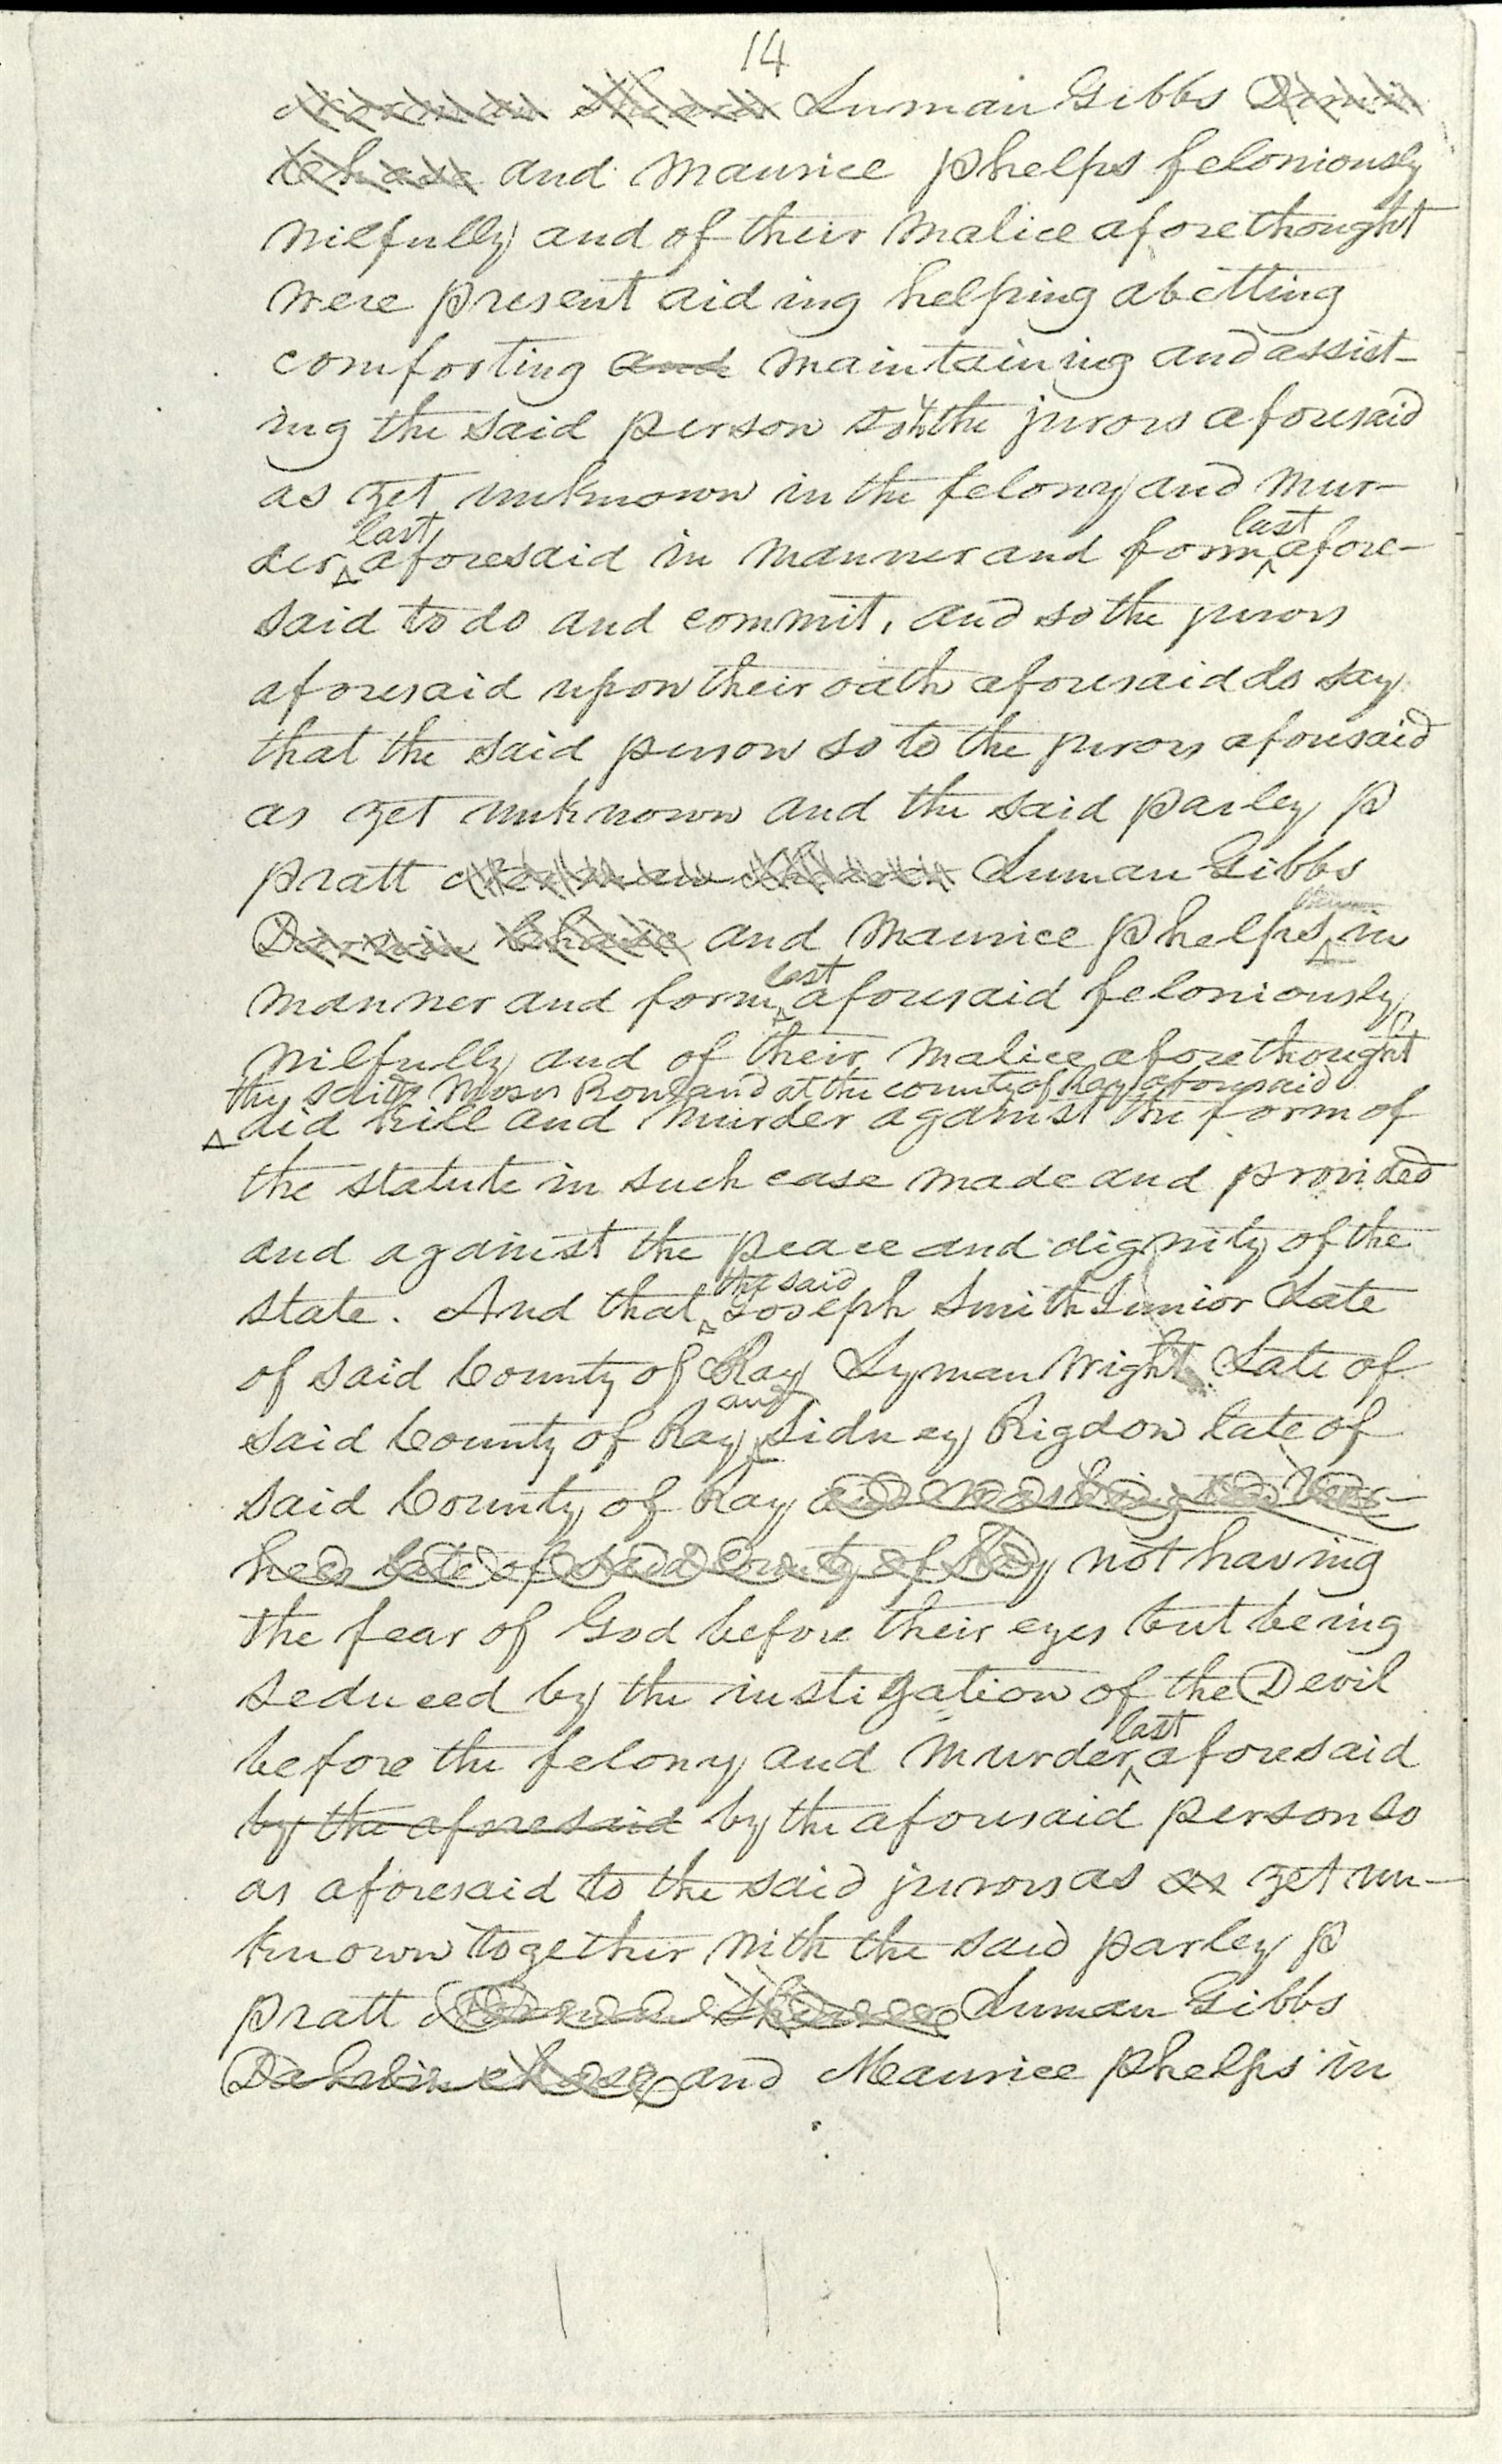 14
Norman Shearer Luman Gibbs Darwin
Chase and Maurice Phelps feloniously
wilfully and of their malice aforethought
were present aiding helping abetting
comforting and maintaining and assist-
ing the said person so to the jurors aforesaid
as yet unknown in the felony and mur-
der last aforesaid in manner and form last afore-
said to do and commit, and so the jurors
aforesaid upon their oath aforesaid do say
that the said person so to the jurors aforesaid
as yet unknown and the said Parley P
Pratt Norman Shearer Luman Gibbs
Darwin Chase and Maurice Phelps in
manner and form last aforesaid feloniously
wilfully and of their malice aforethought
the said Moses Rowland at the county of Ray aforesaid
did kill and murder against the form of
the statute in such case made and provided
and against the peace and dignity of the
state. And that the said Joseph Smith Junior Late
of said County of Ray Lyman Wight Late of
said County of Ray and Sidney Rigdon late of
said County of Ray and Washington Voor-
hees late of said County of Ray not having
the fear of God before their eyes but being
seduced by the instigation of the Devil
before the felony and murder last aforesaid
by the aforesaid by the aforesaid person so
as aforesaid to the said jurors as as yet un-
known together with the said Parley P
Pratt Norman Shearer Luman Gibbs
Darwin Chase and Maurice Phelps in